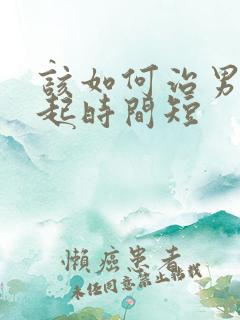 該如何治男
起時間短
懶癌患者
未任同意禁止轉載